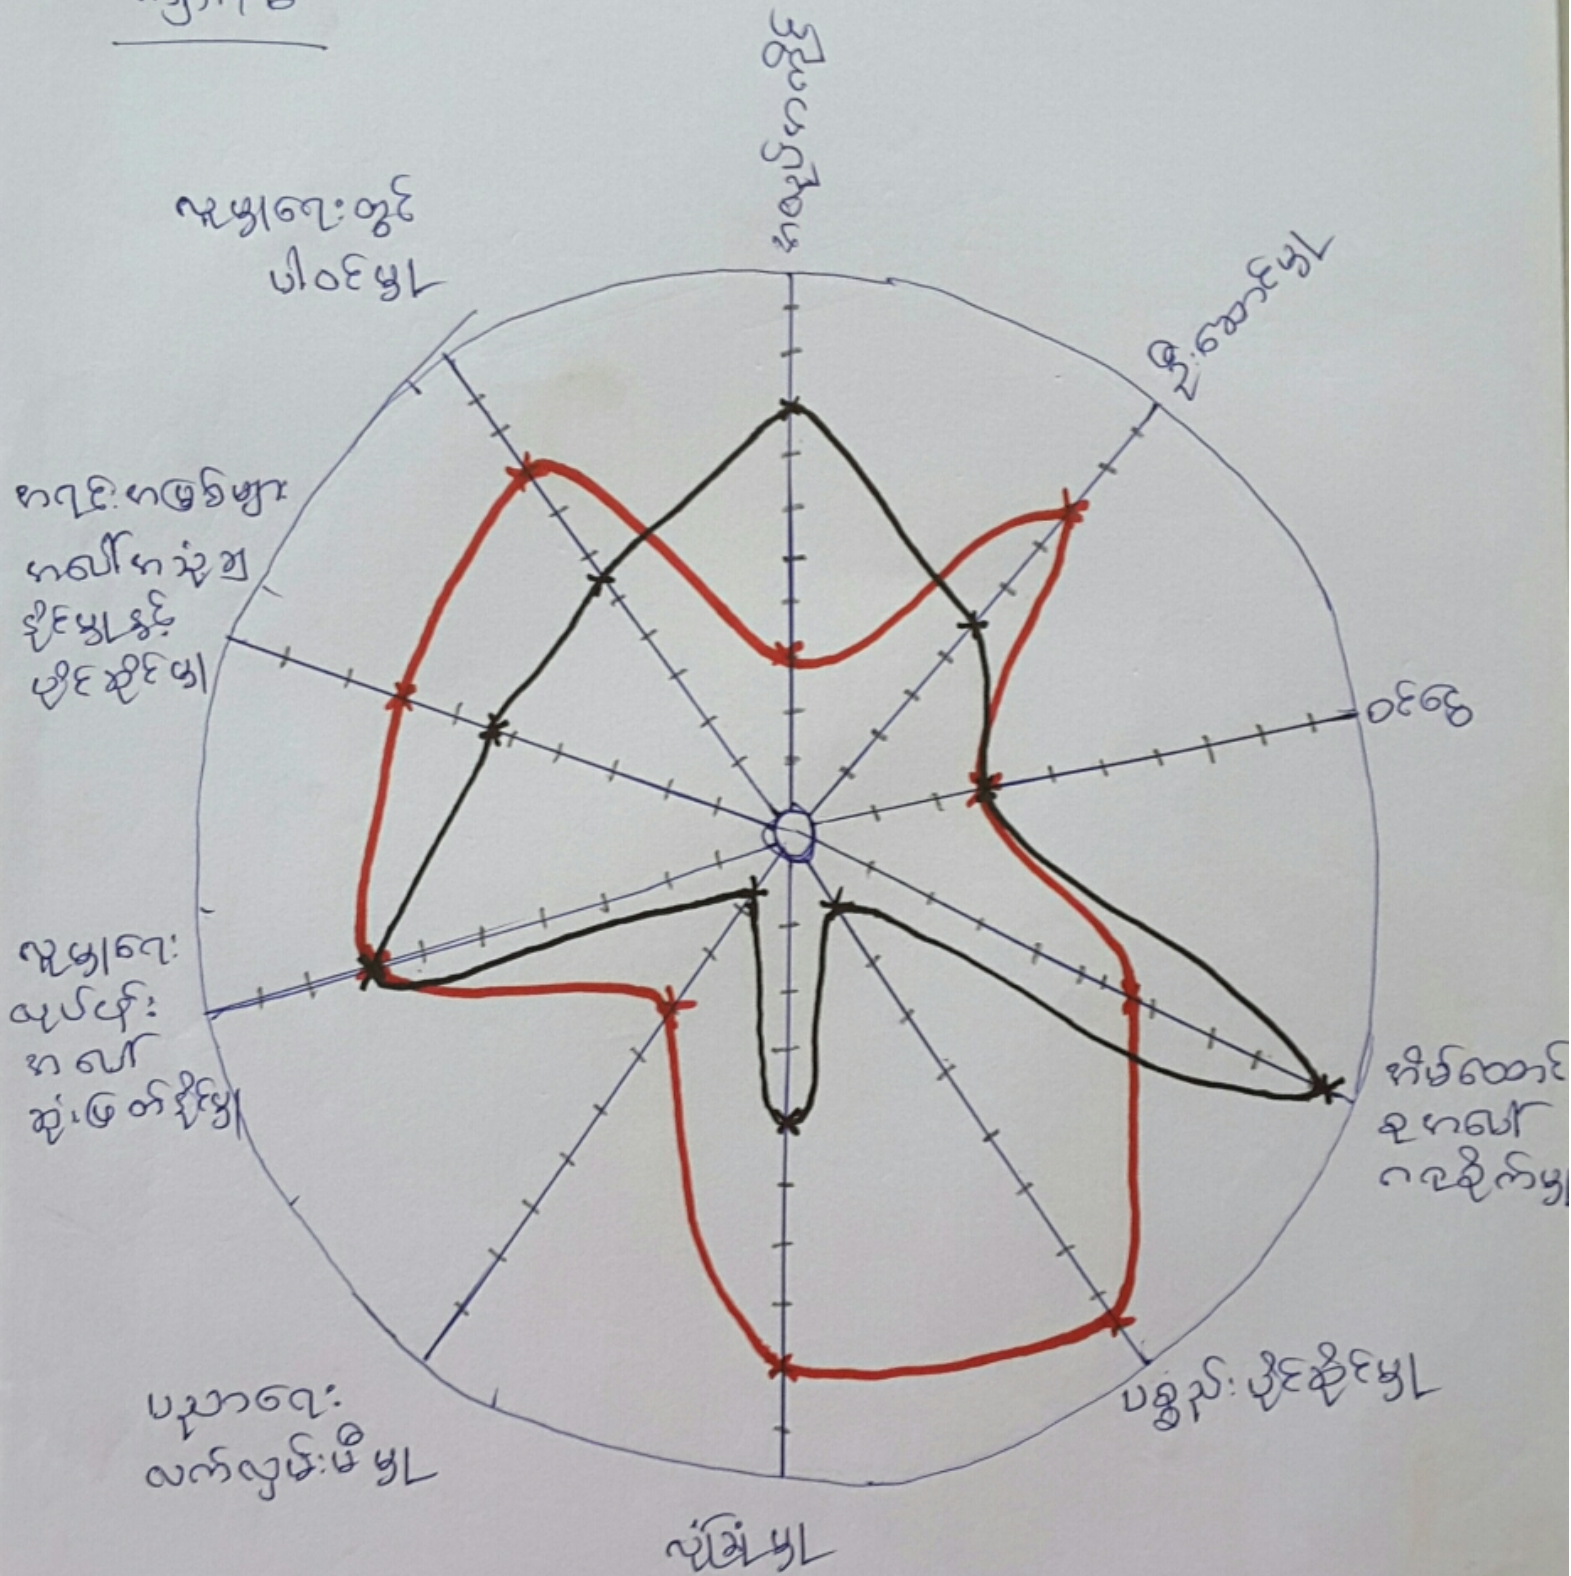 လူမှုရေးတွင်
ပါဝင်မှု
ဦးဆောင်မှု
ဝင်ငွေ
အိမ်ထောင်
စုအပေါ်
ဂရုစိုက်မှု
ပစ္စည်းပိုင်ဆိုင်မှု
လုံခြုံမှု
ပညာရေး
လက်လှမ်းမီမှု
လူမှုရေး
လုပ်ငန်း
အပေါ်
ဆုံးဖြတ်နိုင်မှု
အရင်းအမြစ်များ
အပေါ်အသုံးချ
နိုင်မှုနှင့်
ပိုင်ဆိုင်မှု